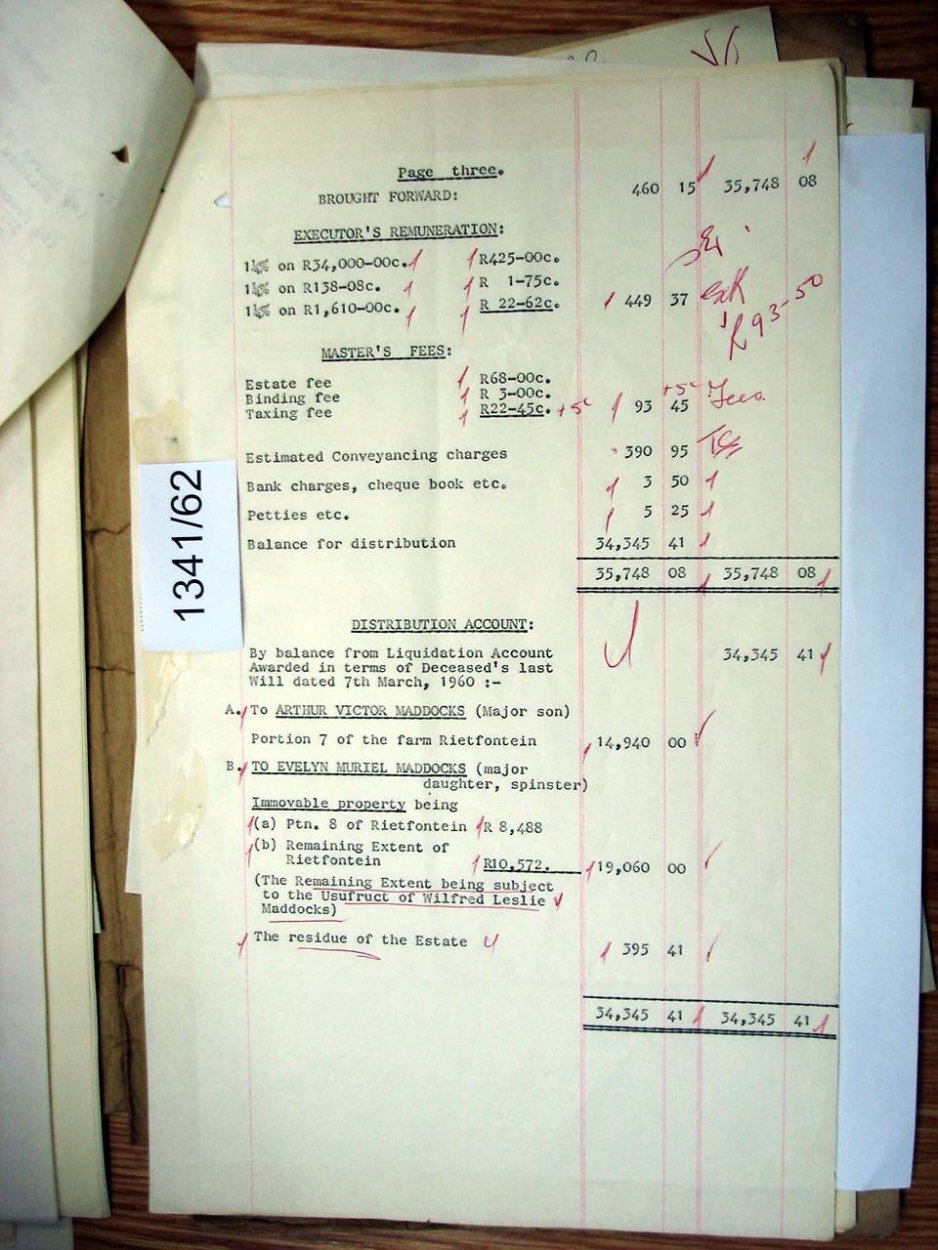 Page three.
BROUGHT FORWARD: 460 15 35,748 08
EXECUTOR'S REMUNERATION:
1¼% on R34,000-00c. R425-00c.
1¼% on R138-08c. R 1-75c.
1¼% on R1,610-00c. R 22-62c. 449 37
R93-50
MASTER'S FEES:
Estate fee R68-00c.
Binding fee R 3-00c.
Taxing fee R22-45c. +5c 93 45 +5c
Estimated Conveyancing charges 390 95
Bank charges, cheque book etc. 3 50
Petties etc. 5 25
Balance for distribution 34,345 41
35,748 08 35,748 08
1341/62
DISTRIBUTION ACCOUNT:
By balance from Liquidation Account 34,345 41
Awarded in terms of Deceased's last
Will dated 7th March, 1960 :-
A. To ARTHUR VICTOR MADDOCKS (Major son)
Portion 7 of the farm Rietfontein 14,940 00
B. TO EVELYN MURIEL MADDOCKS (major
daughter, spinster)
Immovable property being
(a) Ptn. 8 of Rietfontein R 8,488
(b) Remaining Extent of
Rietfontein R10,572. 19,060 00
(The Remaining Extent being subject
to the Usufruct of Wilfred Leslie
Maddocks)
The residue of the Estate 395 41
34,345 41 34,345 41